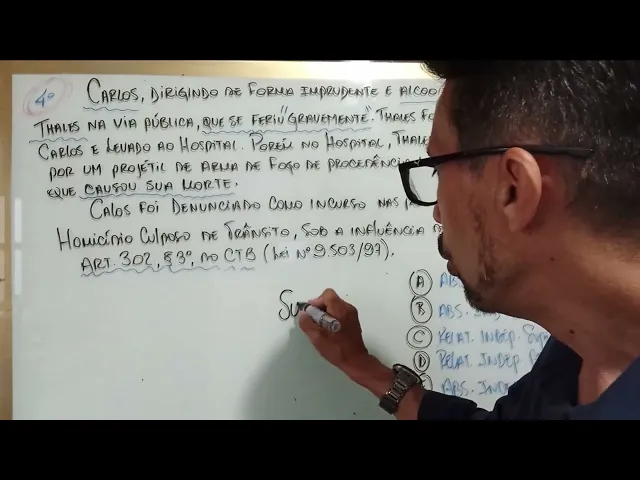 4º
CARLOS, DIRIGINDO DE FORMA IMPRUDENTE E ALCOO
THALES NA VIA PÚBLICA, QUE SE FERIU "GRAVEMENTE". THALES FO
CARLOS E LEVADO AO HOSPITAL. PORÉM NO HOSPITAL, THALE
POR UM PROJÉTIL DE ARMA DE FOGO DE PROCEDÊNCIA
QUE CAUSOU SUA MORTE.
CALOS FOI DENUNCIADO COMO INCURSO NAS
HOMICÍDIO CULPOSO DE TRÂNSITO, SOB A INFLUÊNCIA
ART. 302, § 3º, NO CTB (LEI Nº 9.503/97).
Su
A ABS
B ABS. IND
C RELAT. INDEP. SUP
D RELAT. INDEP.
ABS. INDE